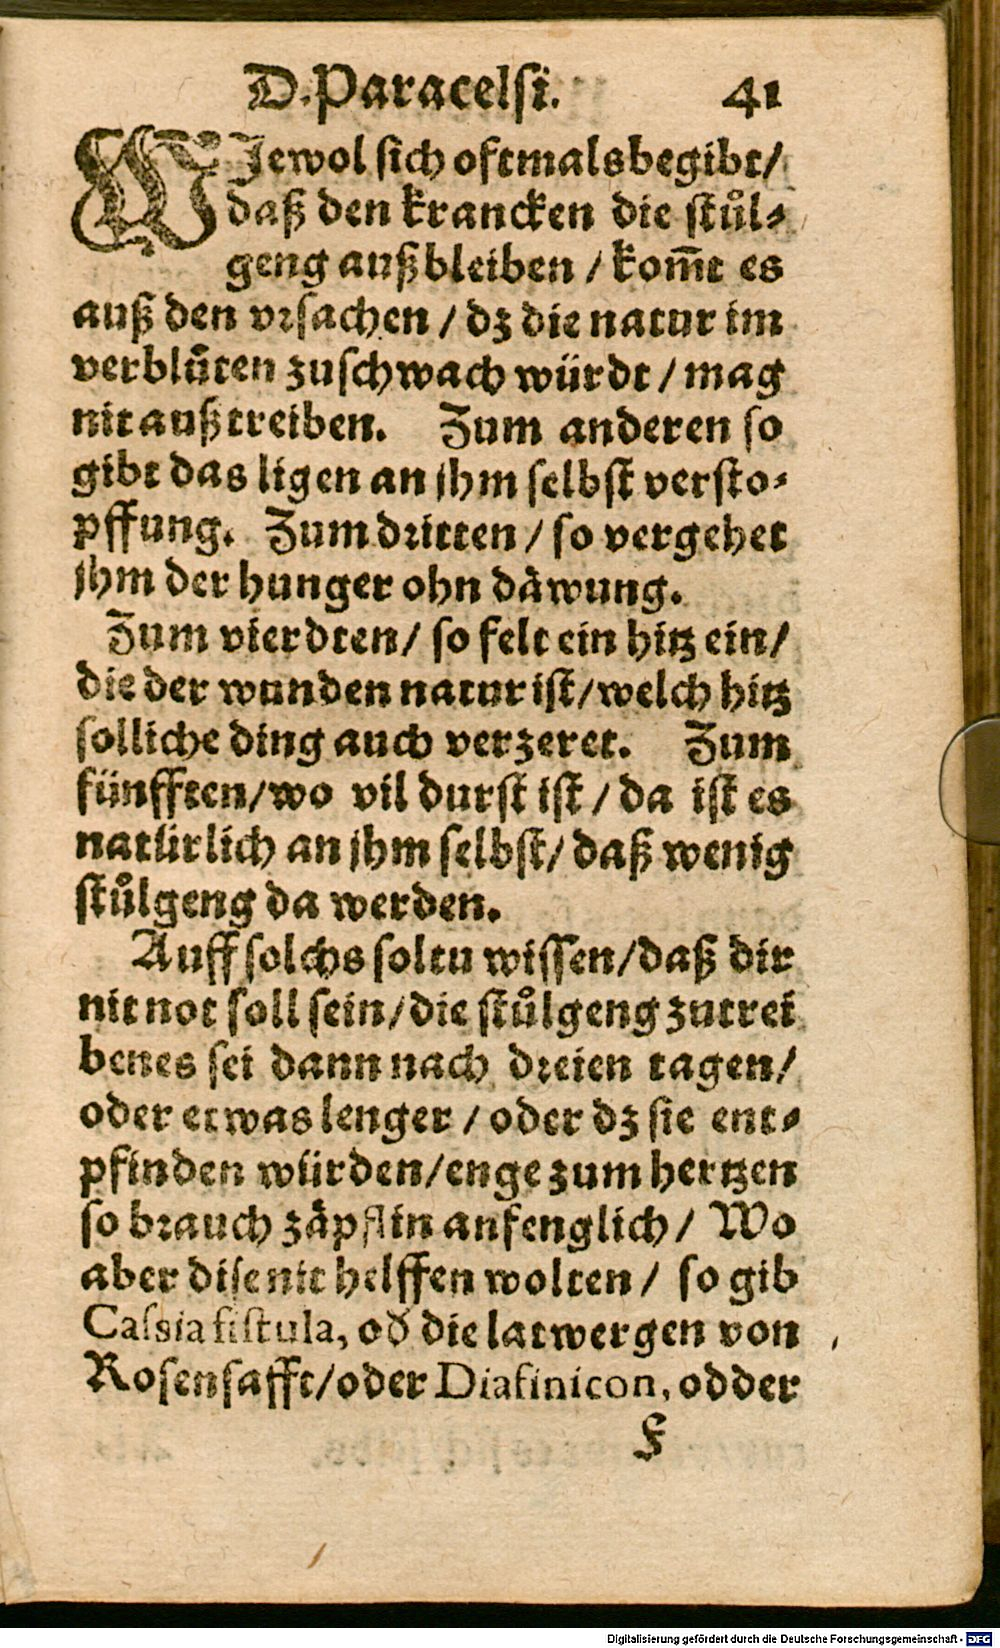 D. Paracelsi. 41
WJewol sich oftmals begibt/
daß den krancken die stůl-
geng außbleiben / kom̄t es
auß den vrsachen / dz die natur im
verblůten zuschwach würdt / mag
nit außtreiben. Zum anderen so
gibt das ligen an jhm selbst versto-
pffung. Zum dritten / so vergehet
jhm der hunger ohn däwung.
Zum vierdten / so felt ein hitz ein /
die der wunden natur ist / welch hitz
solliche ding auch verzeret. Zum
fünfften / wo vil durst ist / da ist es
natürlich an jhm selbst / daß wenig
stůlgeng da werden.
Auff solchs soltu wissen / daß dir
nit not soll sein / die stůlgeng zutrei
benes sei dann nach dreien tagen /
oder etwas lenger / oder dz sie ent-
pfinden würden / enge zum hertzen
so brauch zäpflin anfenglich / Wo
aber dise nit helffen wolten / so gib
Cassia fistula, od̄ die latwergen von
Rosensafft / oder Diafinicon, odder
F
Digitalisierung gefördert durch die Deutsche Forschungsgemeinschaft - DFG